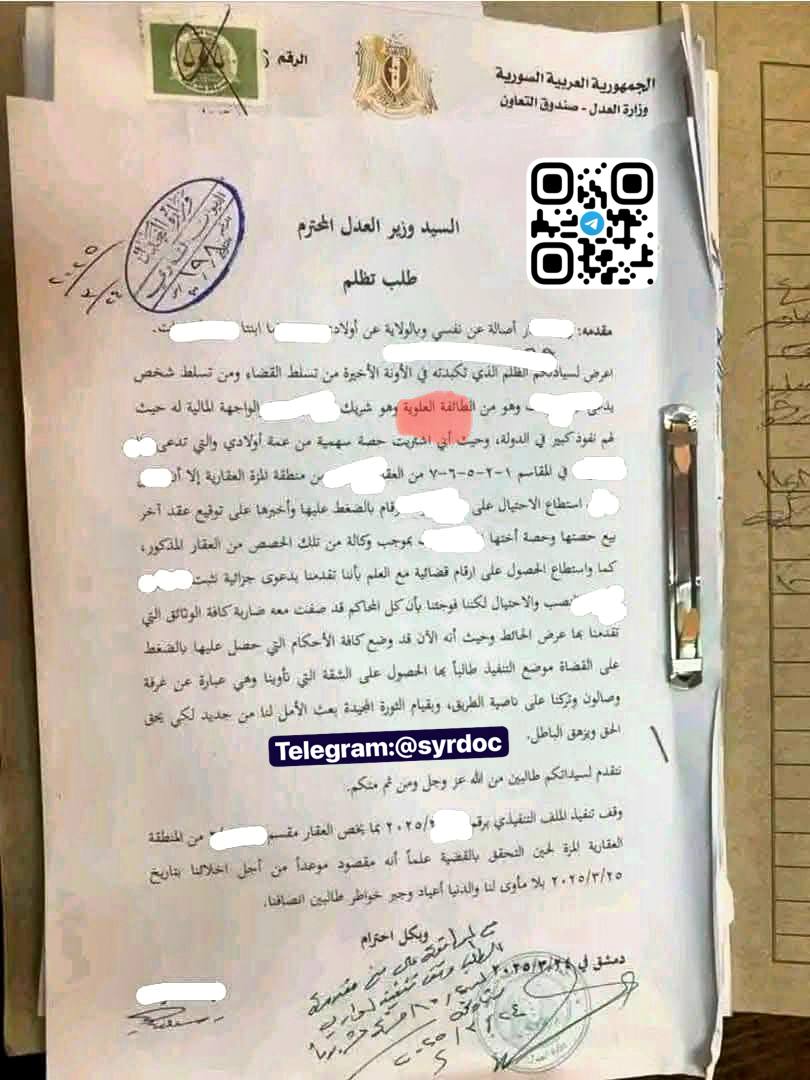 الجمهورية العربية السورية
وزارة العدل - صندوق التعاون
الرقم
وزارة العدل
السيد وزير العدل المحترم
طلب تظلم
مقدمه: أصالة عن نفسي وبالولاية عن أولادي
اعرض لسيادتكم الظلم الذي تكبدته في الآونة الأخيرة من تسلط القضاء ومن تسلط شخص
يدعى وهو من الطائفة العلوية وهو شريك الواجهة المالية له حيث
لهم نفوذ كبير في الدولة، وحيث أني اشتريت حصة سهمية من عمة أولادي والتي تدعى
في المقاسم ١-٢-٥-٦-٧ من العقار من منطقة المزة العقارية إلا أن
استطاع الاحتيال على بالضغط عليها وأخبرها على توقيع عقد آخر
بيع حصتها وحصة أختها بموجب وكالة من تلك الحصص من العقار المذكور،
كما واستطاع الحصول على ارقام قضائية مع العلم بأننا تقدمنا بدعوى جزائية تثبت
النصب والاحتيال لكننا فوجئنا بأن كل المحاكم قد صفت معه ضاربة كافة الوثائق التي
تقدمنا بما عرض الحائط وحيث أنه الآن قد وضع كافة الأحكام التي حصل عليها بالضغط
على القضاة موضع التنفيذ طالباً بما الحصول على الشقة التي تأوينا وهي عبارة عن غرفة
وصالون وتركنا على ناصية الطريق، وبقيام الثورة المجيدة بعث الأمل لنا من جديد لكي يحق
الحق ويزهق الباطل.
Telegram:@syrdoc
نتقدم لسيداتكم طالبين من الله عز وجل ومن ثم منكم.
وقف تنفيذ الملف التنفيذي برقم /٢٠٢٥ بما يخص العقار مقسم من المنطقة
العقارية المزة لحين التحقق بالقضية علماً أنه مقصود موعداً من أجل اخلالنا بتاريخ
٢٠٢٥/٣/٢٥ بلا مأوى لنا والدنيا أعياد وجبر خواطر طالبين انصافنا.
وبكل احترام
دمشق في ٢٠٢٥/٣/٢٤